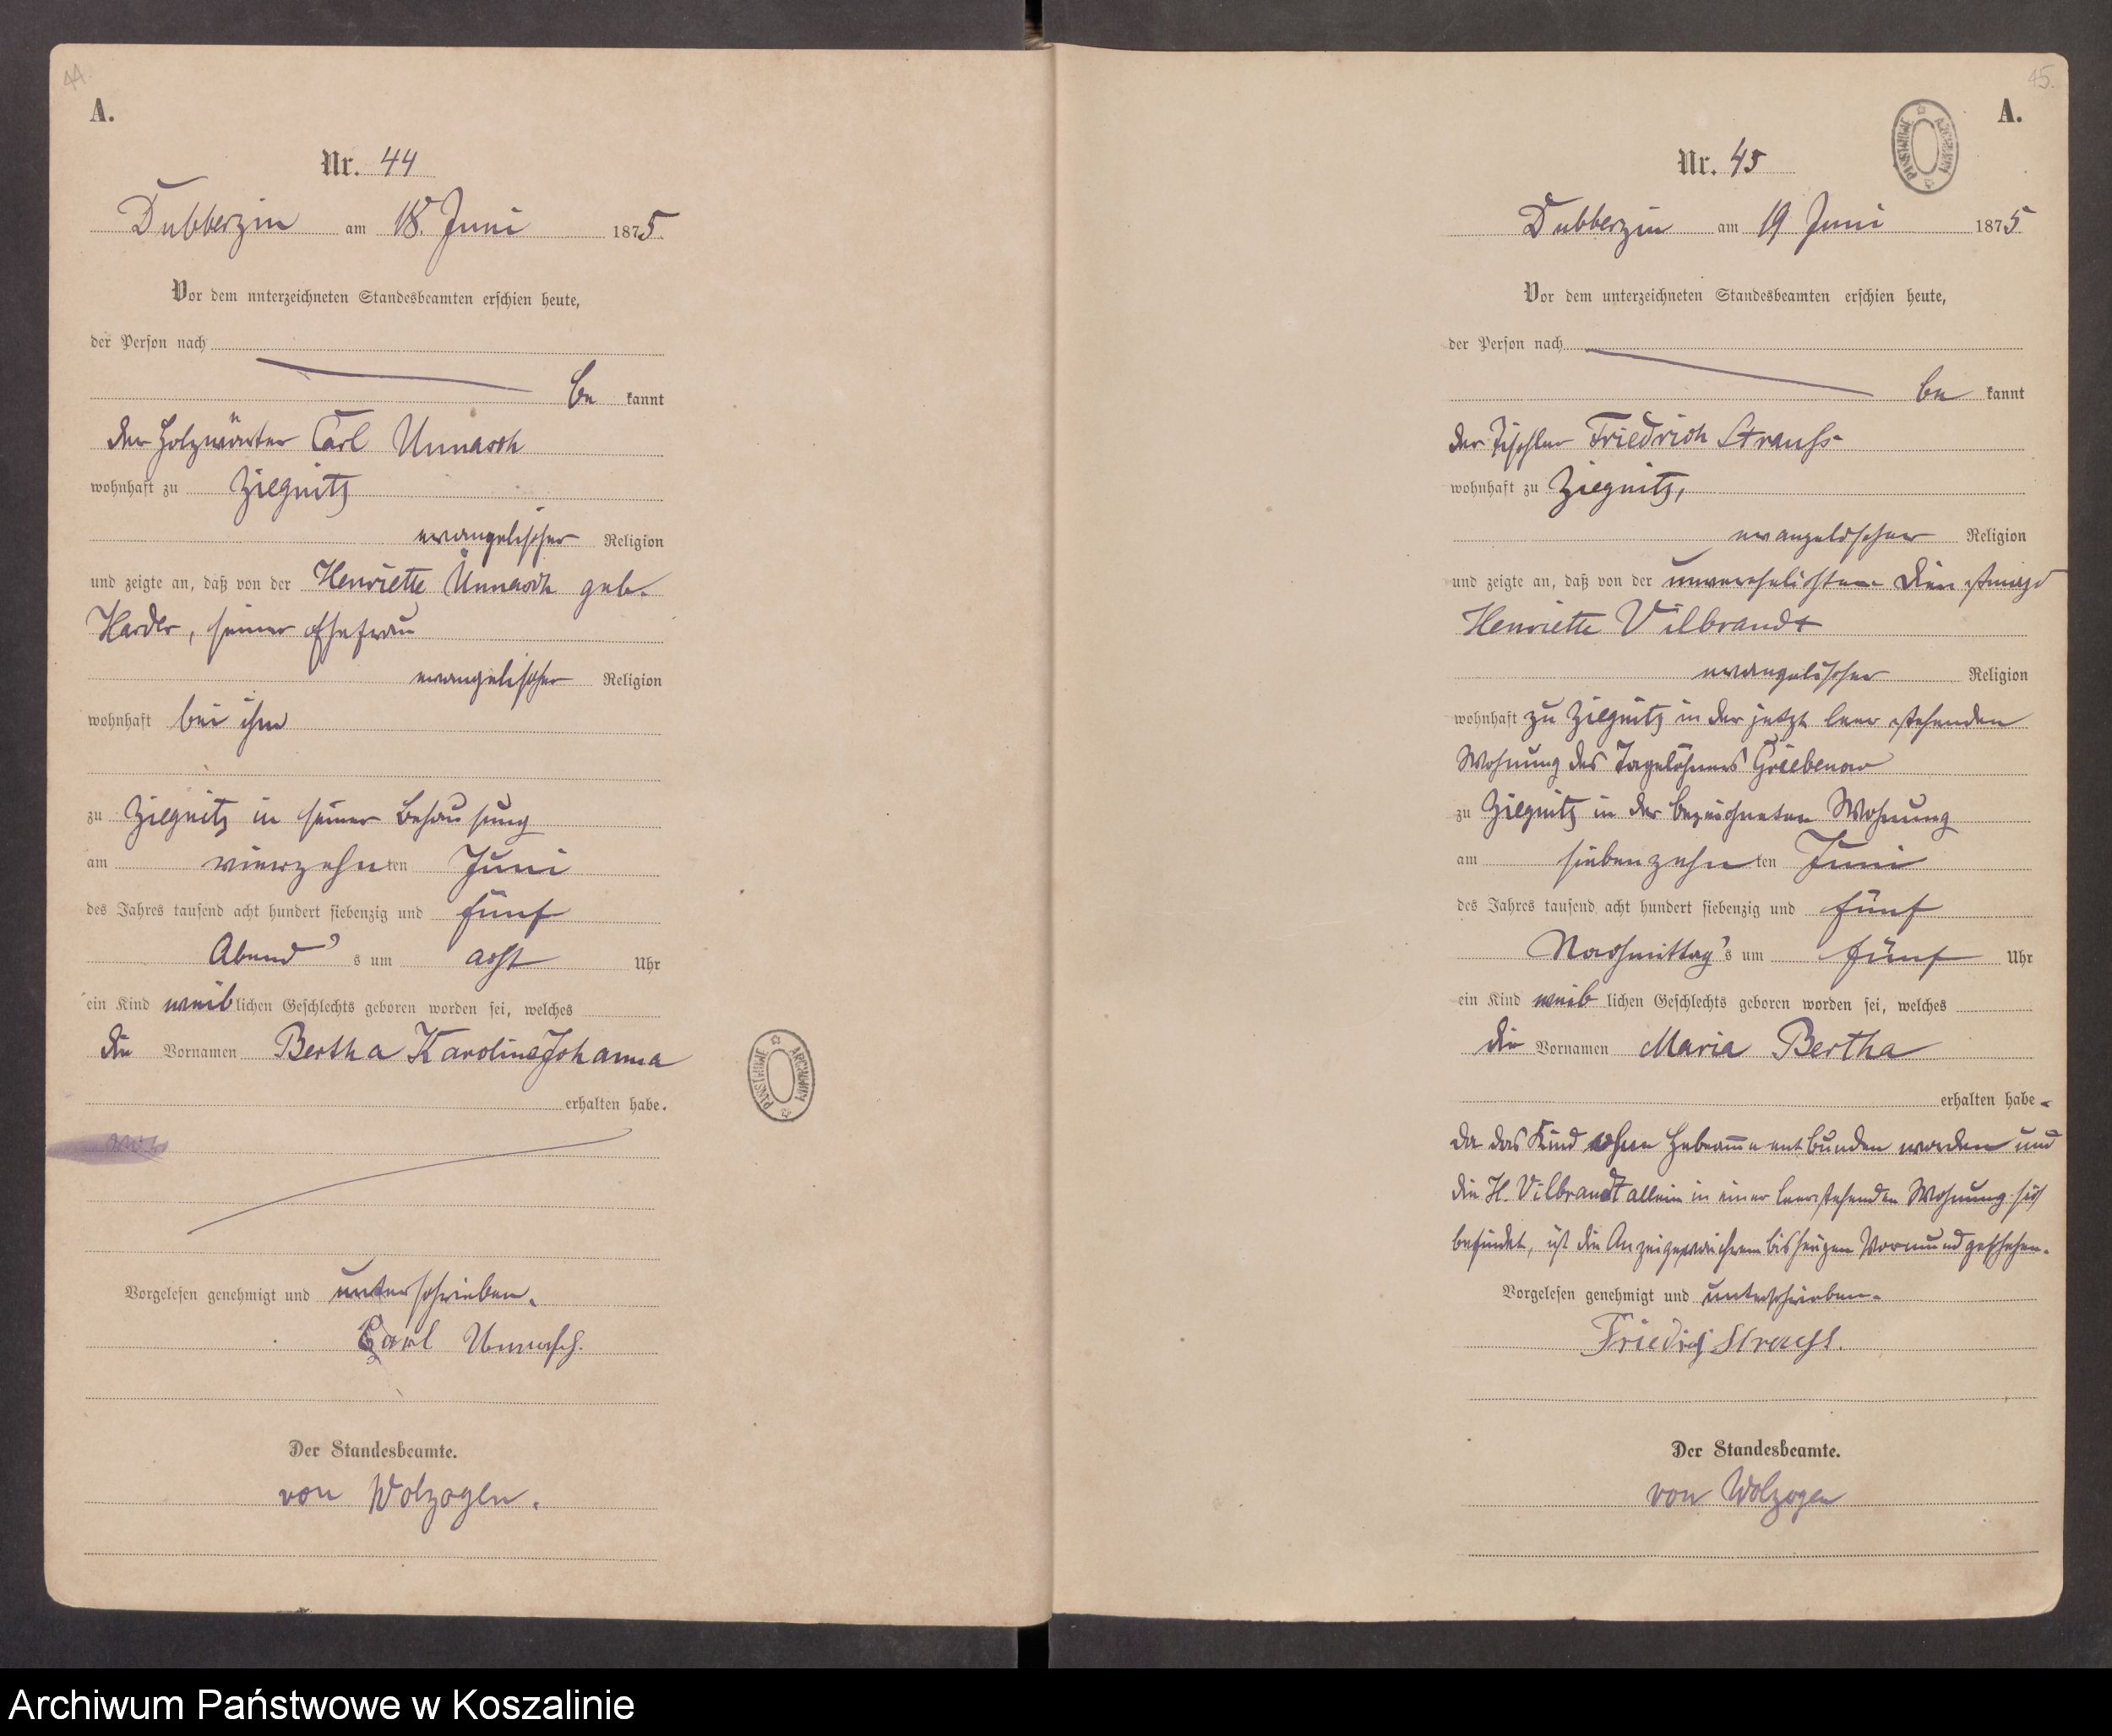 44.
A.
Nr. 44
Dubberzin am 18. Juni 1875.
Vor dem unterzeichneten Standesbeamten erschien heute,
der Person nach
be kannt
der Holzwärter Carl Unnasch
wohnhaft zu Ziegnitz
evangelischer Religion
und zeigte an, daß von der Henriette Unnasch geb.
Harder, seiner Ehefrau
evangelischer Religion
wohnhaft bei ihm
zu Ziegnitz in seiner Behausung
am vierzehnten Juni
des Jahres tausend acht hundert siebenzig und fünf
Abend s um acht Uhr
ein Kind weiblichen Geschlechts geboren worden sei, welches
die Vornamen Bertha Karoline Johanna
erhalten habe.
Vorgelesen genehmigt und unterschrieben.
Carl Unnasch.
Der Standesbeamte.
von Wolzogen.
PAŃSTWOWE ARCHIWUM
45.
A.
PAŃSTWOWE ARCHIWUM
Nr. 45
Dubberzin am 19 Juni 1875
Vor dem unterzeichneten Standesbeamten erschien heute,
der Person nach
be kannt
der Tischler Friedrich Strauß
wohnhaft zu Ziegnitz,
evangelischer Religion
und zeigte an, daß von der unverehelichten Dienstmagd
Henriette Vilbrandt
evangelischer Religion
wohnhaft zu Ziegnitz in der jetzt leer stehenden
Wohnung des Tagelöhners Griebenow
zu Ziegnitz in der bezeichneten Wohnung
am siebenzehn ten Juni
des Jahres tausend acht hundert siebenzig und fünf
Nachmittag's um fünf Uhr
ein Kind weib lichen Geschlechts geboren worden sei, welches
die Vornamen Maria Bertha
erhalten habe.
Da das Kind ohne Hebeamme entbunden worden und
die H. Vilbrandt allein in einer leerstehenden Wohnung sich
befindet, ist die Anzeige von ihrem bisherigen Vormund geschehen.
Vorgelesen genehmigt und unterschrieben.
Friedrich Strauß.
Der Standesbeamte.
von Wolzogen
Archiwum Państwowe w Koszalinie